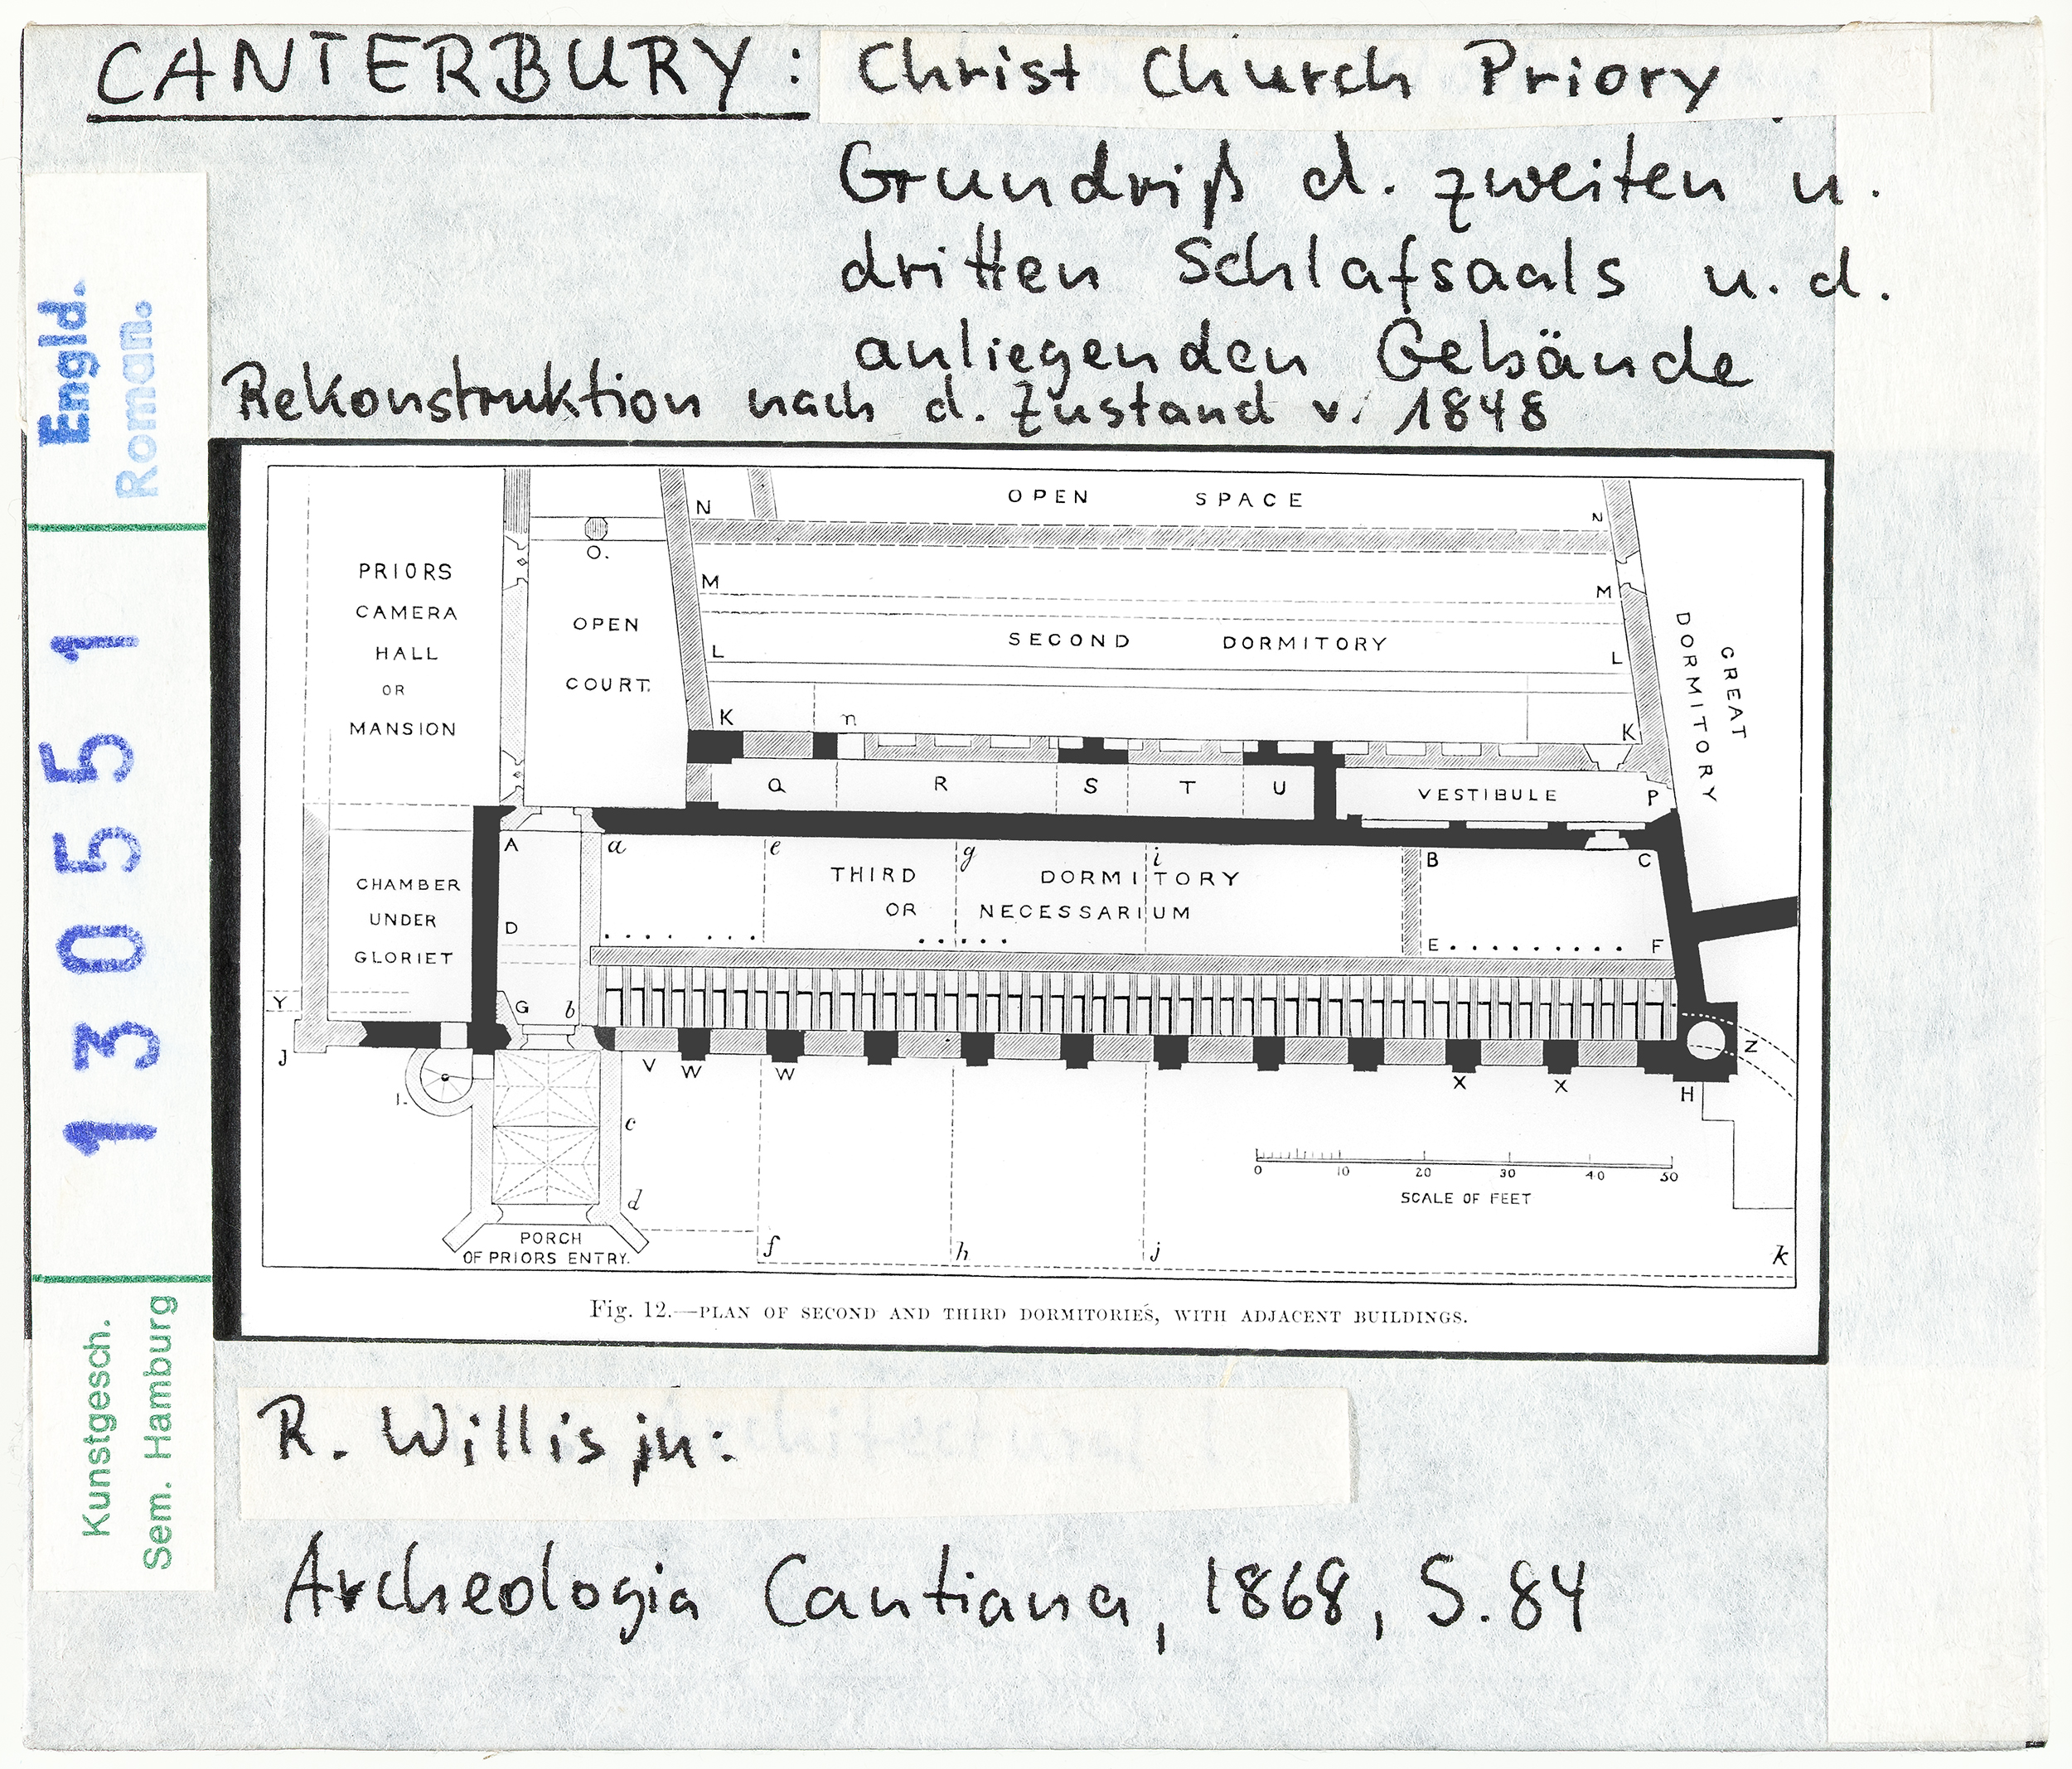 CANTERBURY: Christ Church Priory
Grundriß d. zweiten u.
dritten Schlafsaals u. d.
anliegenden Gebäude
Rekonstruktion nach d. Zustand v. 1848
Engld.
Roman.
130551
Kunstgesch.
Sem. Hamburg
OPEN SPACE
N
N
O.
PRIORS
CAMERA
HALL
OR
MANSION
OPEN
COURT.
M
M
SECOND DORMITORY
L
L
K
n
K
GREAT
DORMITORY
Q R S T U VESTIBULE P
A a e g i B C
THIRD DORMITORY
OR NECESSARIUM
CHAMBER
UNDER
GLORIET
D
E F
Y
G b
J
V W W X X H Z
I.
c
d
0 10 20 30 40 50
SCALE OF FEET
PORCH
OF PRIORS ENTRY.
f h j k
Fig. 12.—PLAN OF SECOND AND THIRD DORMITORIES, WITH ADJACENT BUILDINGS.
R. Willis in:
Archeologia Cantiana, 1868, S. 84